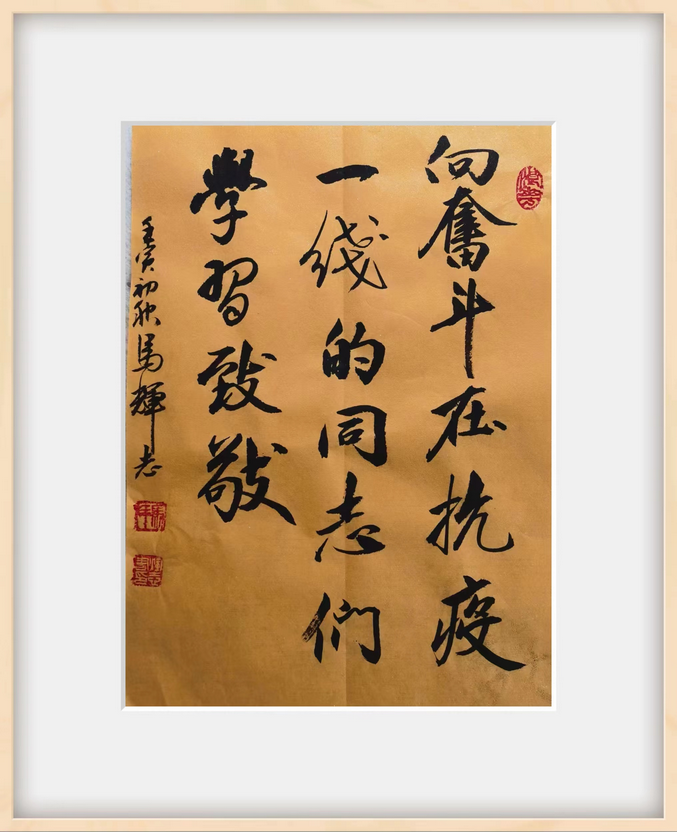 向奮斗在抗疫
一綫的同志們
學習致敬
壬寅初秋馬輝志